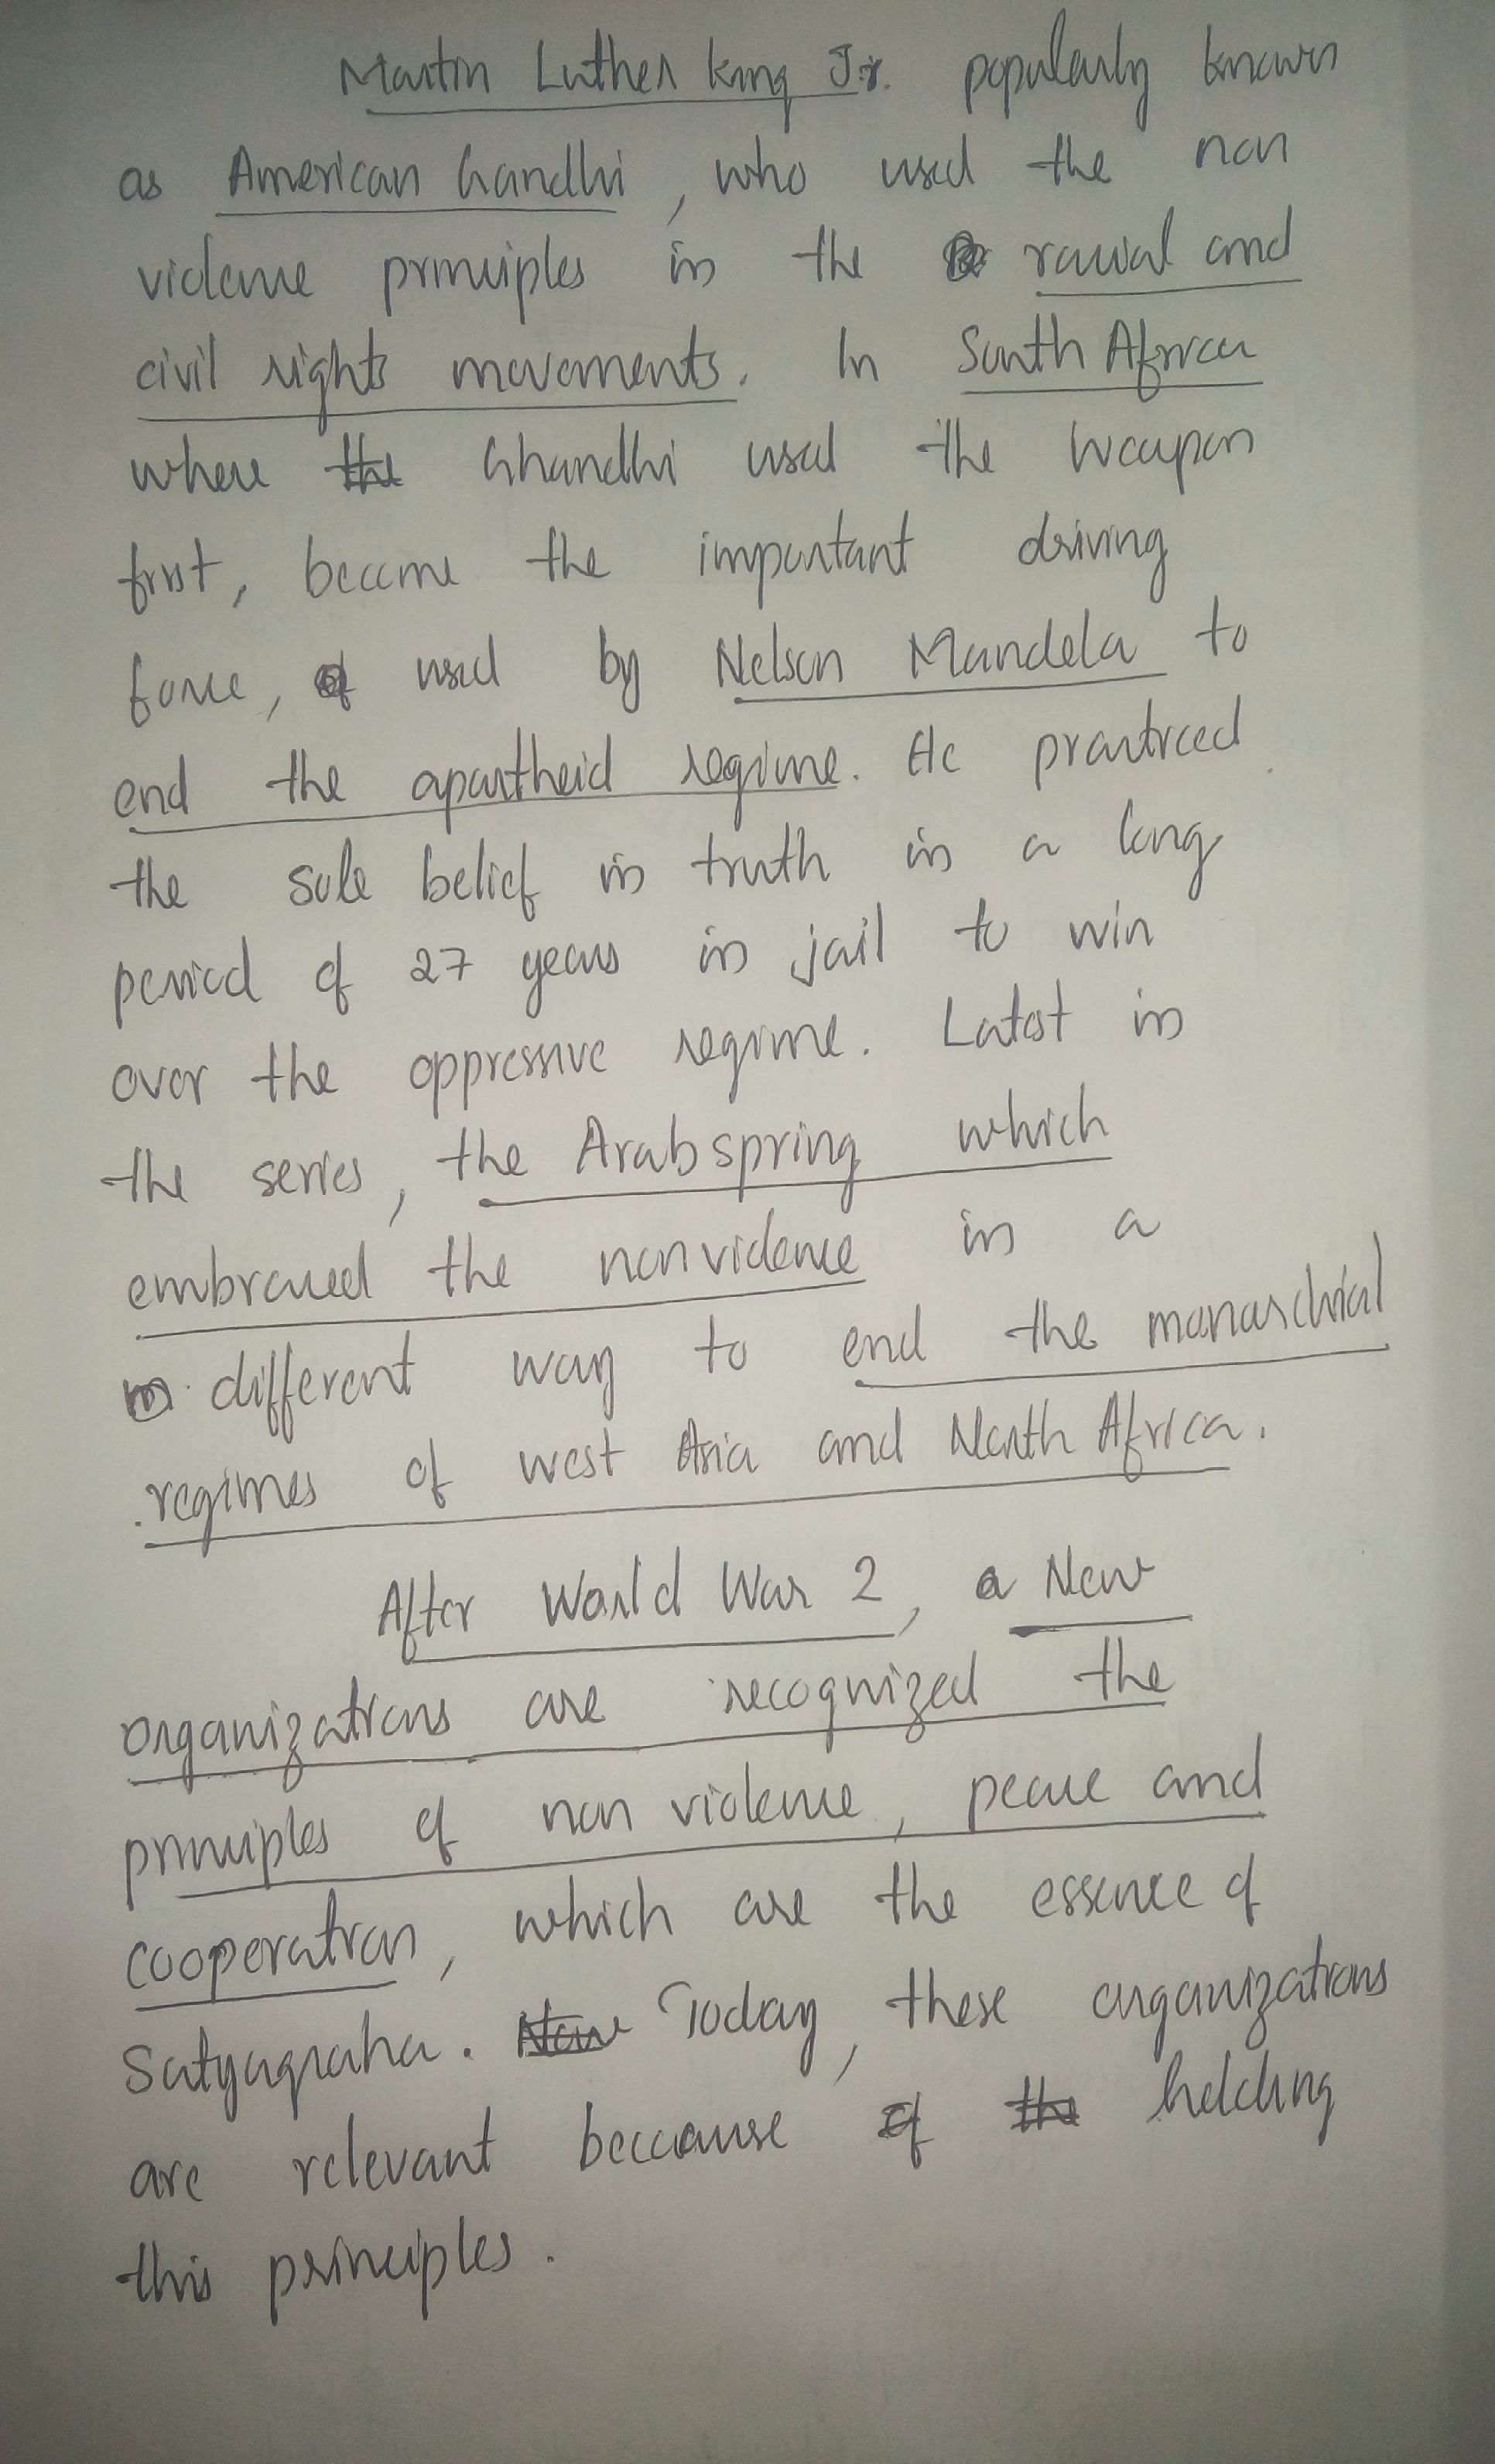 Martin Luther King Jr. popularly known
as American Gandhi, who used the non
violence principles in the racial and
civil rights movements. In South Africa
where the Ghandhi used the weapon
first, become the important driving
force, of used by Nelson Mandela to
end the apartheid regime. He practiced
the sole belief in truth in a long
period of 27 years in jail to win
over the oppressive regime. Latest in
the series, the Arab spring which
embraced the nonviolence in a
different way to end the monarchial
regimes of west Asia and North Africa.
After World War 2, a New
organizations are recognized the
principles of non violence, peace and
cooperation, which are the essence of
Satyagraha. Now Today, these organizations
are relevant because of the holding
this principles.